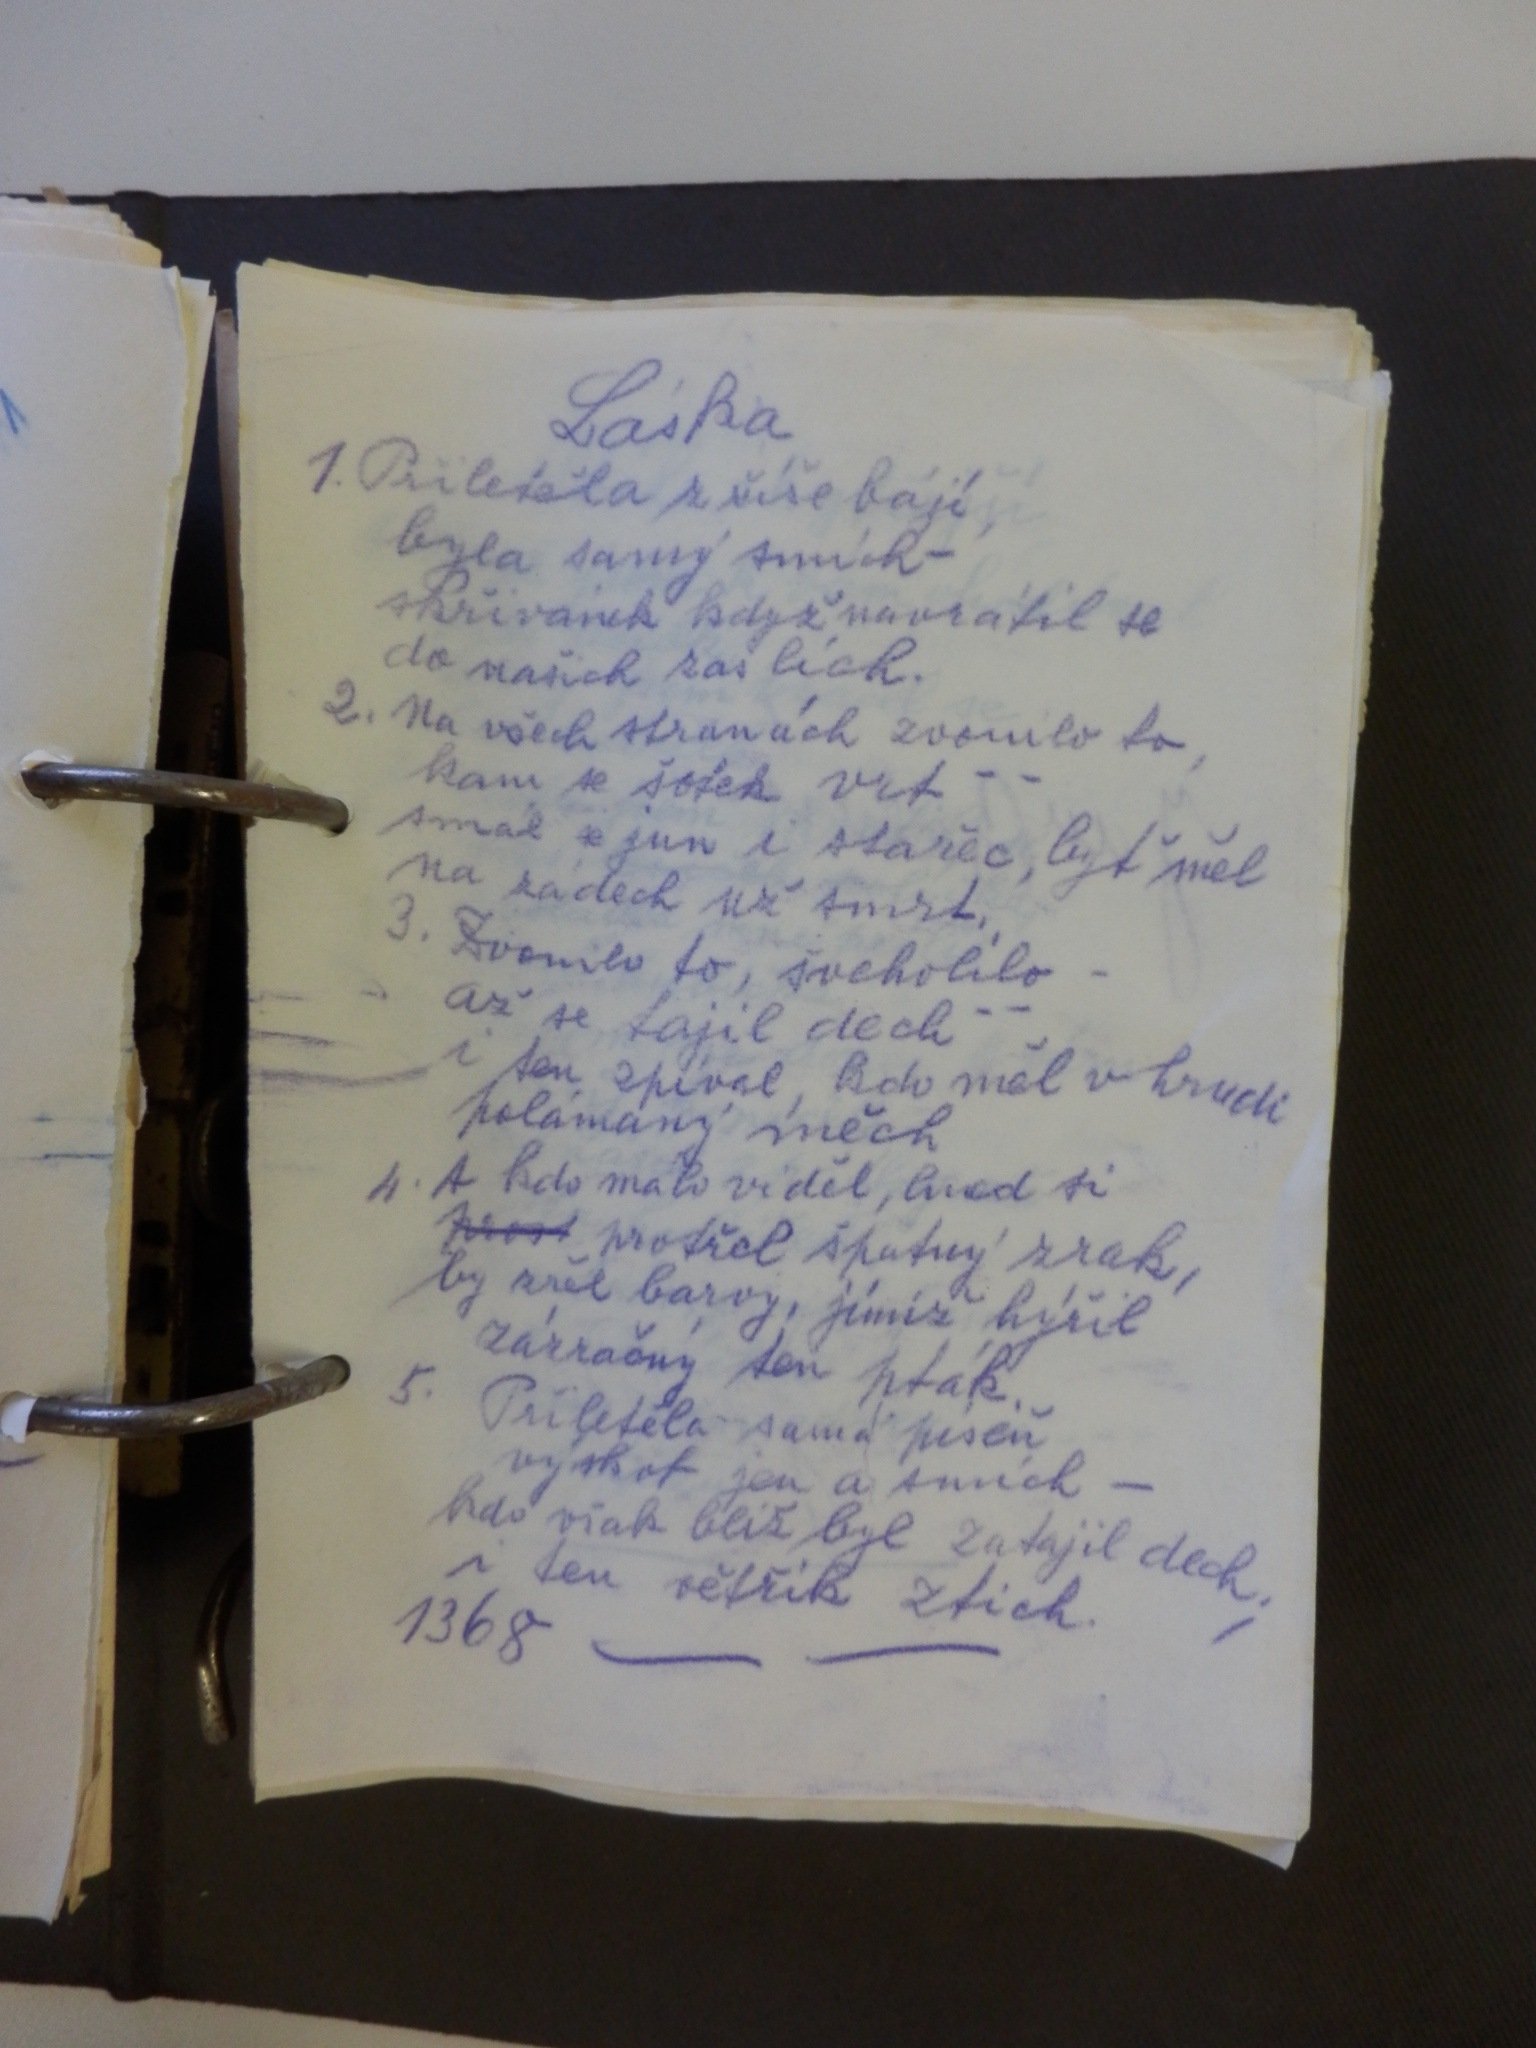 Láska
1. Přiletěla z říše bájí,
byla samý smích -
skřivánek když navrátil se
do našich zas lích.
2. Na všech stranách zvonilo to,
kam se šotek vrt - -
smál se jun i stařec, byť měl
na zádech už smrt.
3. Zvonilo to, šveholilo -
až se tajil dech - -
i ten zpíval, kdo měl v hrudi
polámaný měch
4. A kdo málo viděl, hned si
prost protřel špatný zrak,
by zřel barvy, jimiž hýřil
zázračný ten pták.
5. Přiletěla samá píseň
výskot jen a smích -
kdo však blíž byl zatajil dech,
i ten větřík ztich.
1368